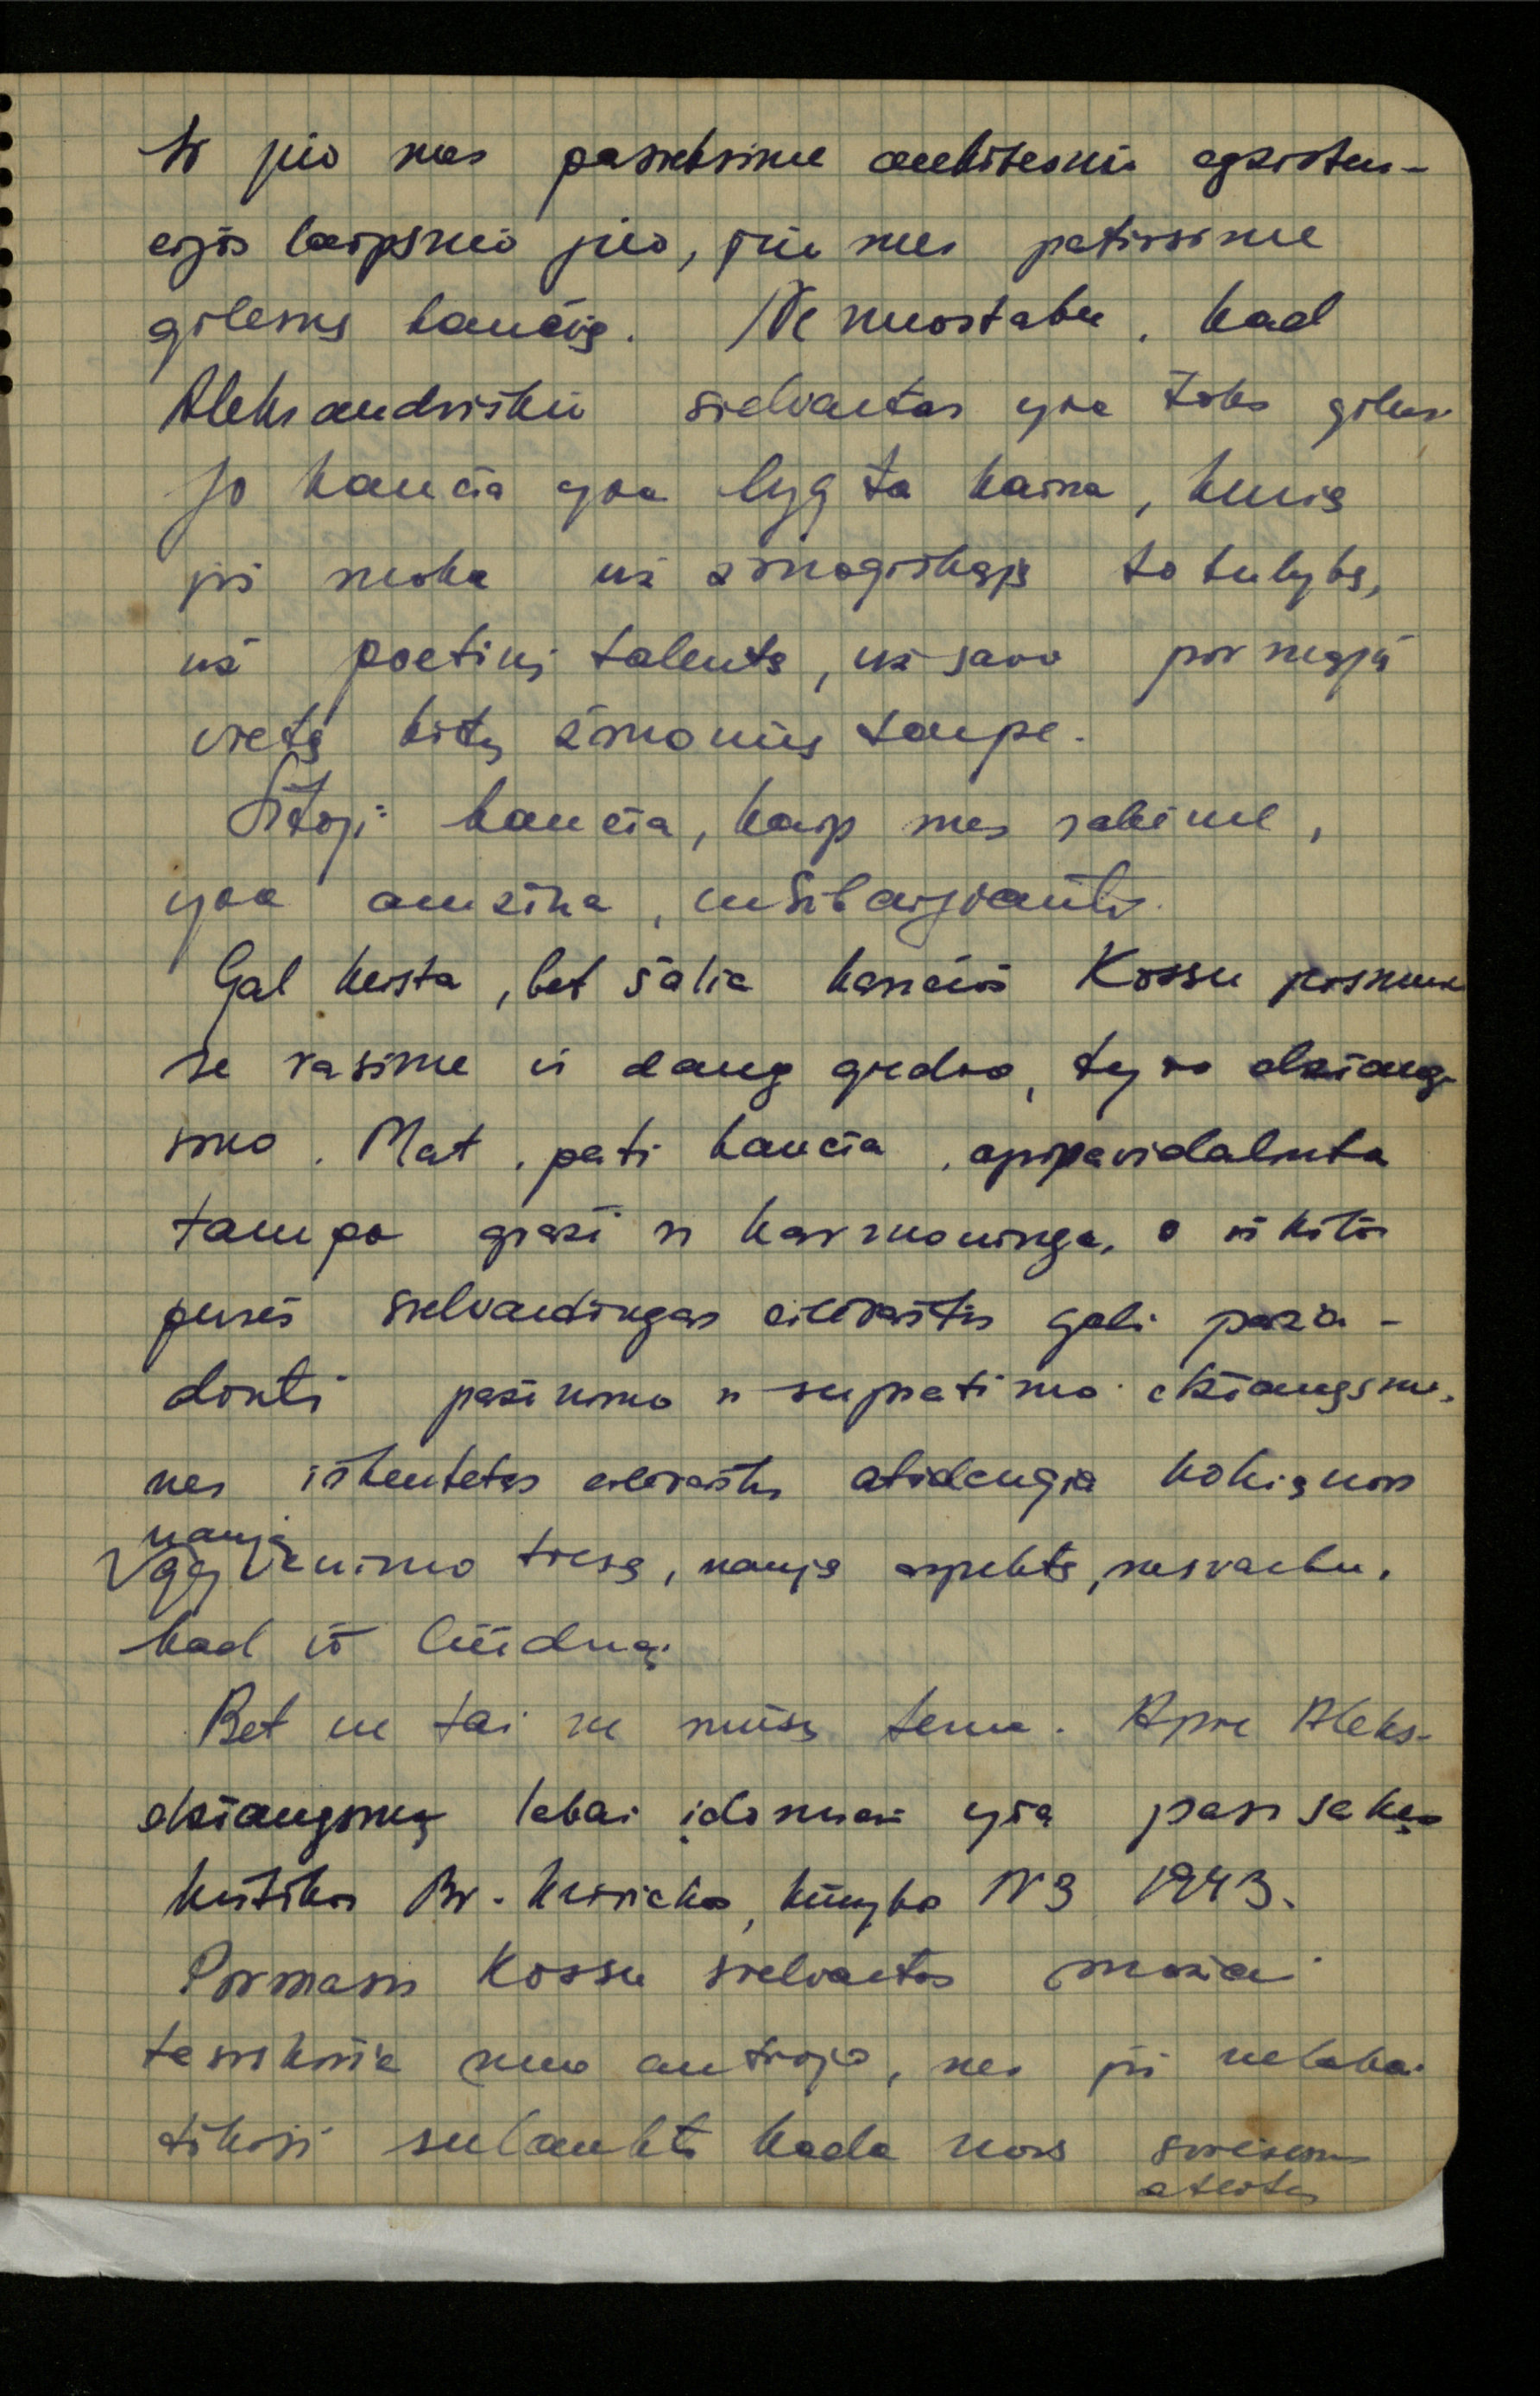 Ir juo mes pasieksime aukštesnio egzisten-
cijos laipsnio juo, juo mes patirsime
gilesnę kančią. Nenuostabu, kad
Aleksandriškio sielvartas yra toks gilus.
Jo kančia yra lyg ta kaina, kurią
jis moka už žmogiškąją totulybę,
už poetinį talentą, už savo pirmąją
vietą kitų žmonių tarpe.
Šitoji kančia, kaip mes sakėme,
yra amžina, nesibaigianti.
Gal keista, bet šalia kančios Kossu posmuo
se rasime ir daug giedro, tyro džiaug-
smo. Mat, pati kančia, apipavidalinta
tampa graži ir harmoninga, o iš kitos
pusės sielvartingas eilėraštis gali paža-
dinti pažinimo ir supratimo džiaugsmą,
nes iškentėtas eilėraštis atidengia kokią nors
naują
gyvenimo tiesą, naują aspektą, nesvarbu,
kad ir liūdną.
Bet ne tai ne mūsų tema. Apie Aleks.
džiaugsmą labai įdomiai yra pasisakęs
kritikas Br. Krivickas, kūryba N3 1943.
Pirmasis Kossu sielvartas mažiau
te&nbsp;nuo antrojo, nes jis nelabai
tikisi sulaukti kada nors šviesesnės
ateities